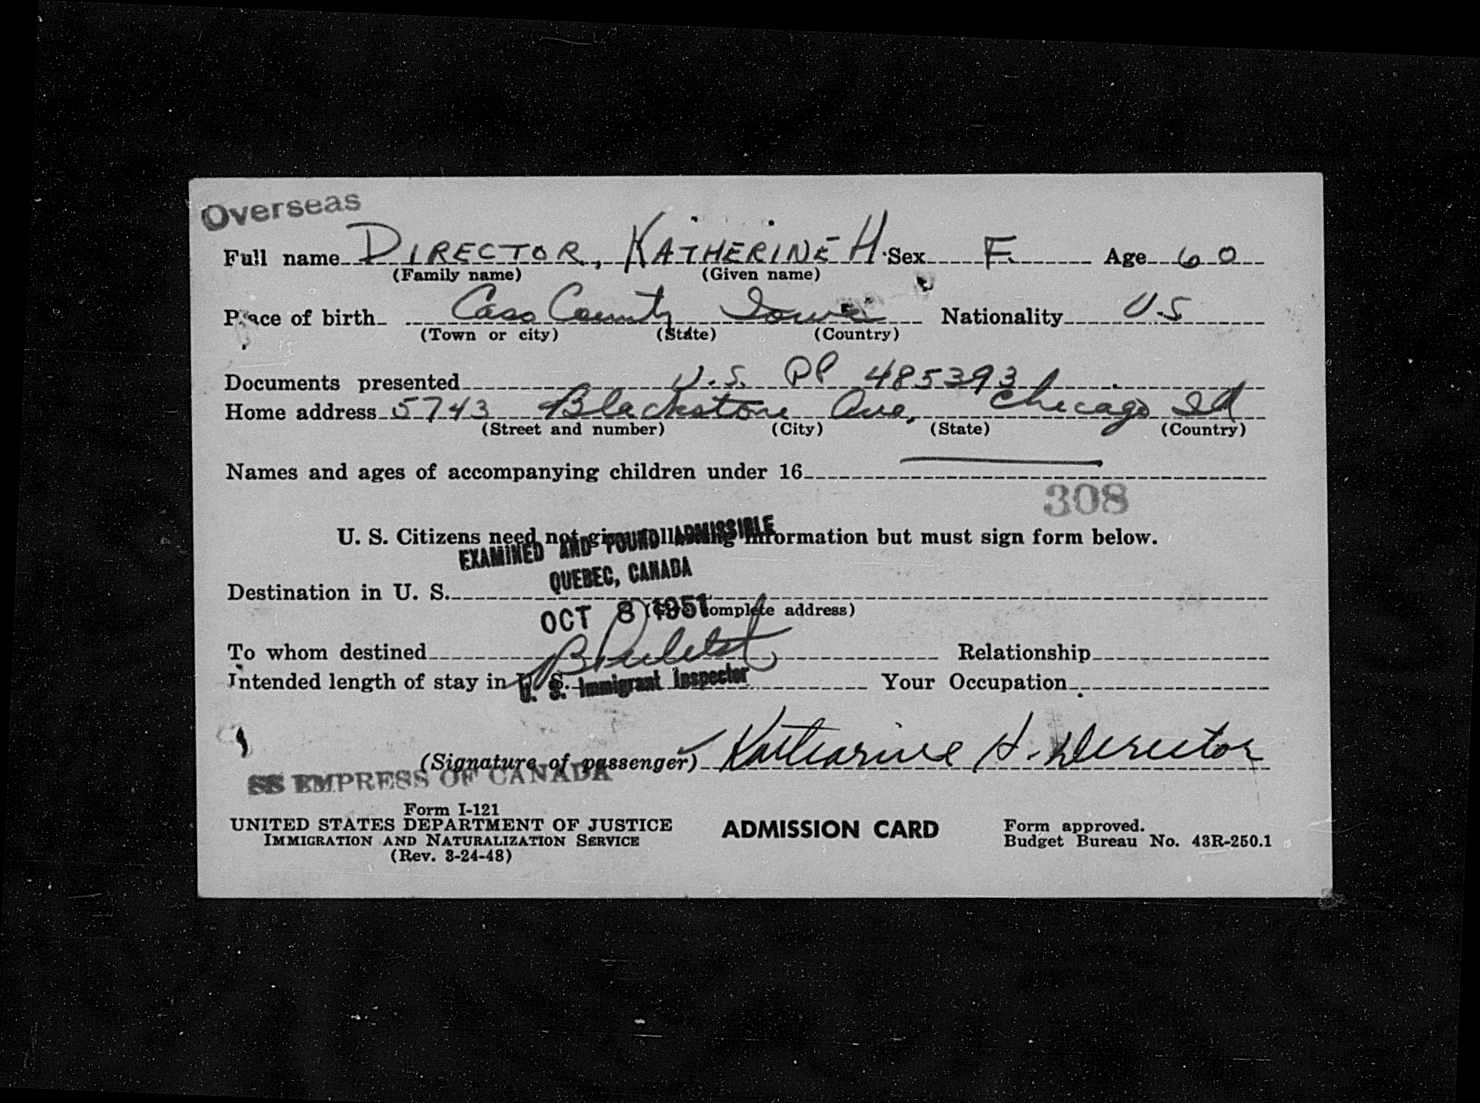 Overseas
Full name DIRECTOR, KATHERINE H. Sex F. Age 60
(Family name) (Given name)
Place of birth Cass County Iowa Nationality U.S
(Town or city) (State) (Country)
Documents presented U.S. PP 485393
Home address 5743 Blackstone Ave, Chicago Ill
(Street and number) (City) (State) (Country)
Names and ages of accompanying children under 16
308
U. S. Citizens need not give following information but must sign form below.
EXAMINED AND FOUND ADMISSIBLE
QUEBEC, CANADA
Destination in U. S.
OCT 8 1951
complete address)
To whom destined Relationship
Intended length of stay in U. S. Your Occupation
U. S. Immigrant Inspector
(Signature of passenger) Katharine H. Director
SS EMPRESS OF CANADA
Form I-121
UNITED STATES DEPARTMENT OF JUSTICE ADMISSION CARD Form approved.
IMMIGRATION AND NATURALIZATION SERVICE Budget Bureau No. 43R-250.1
(Rev. 3-24-48)